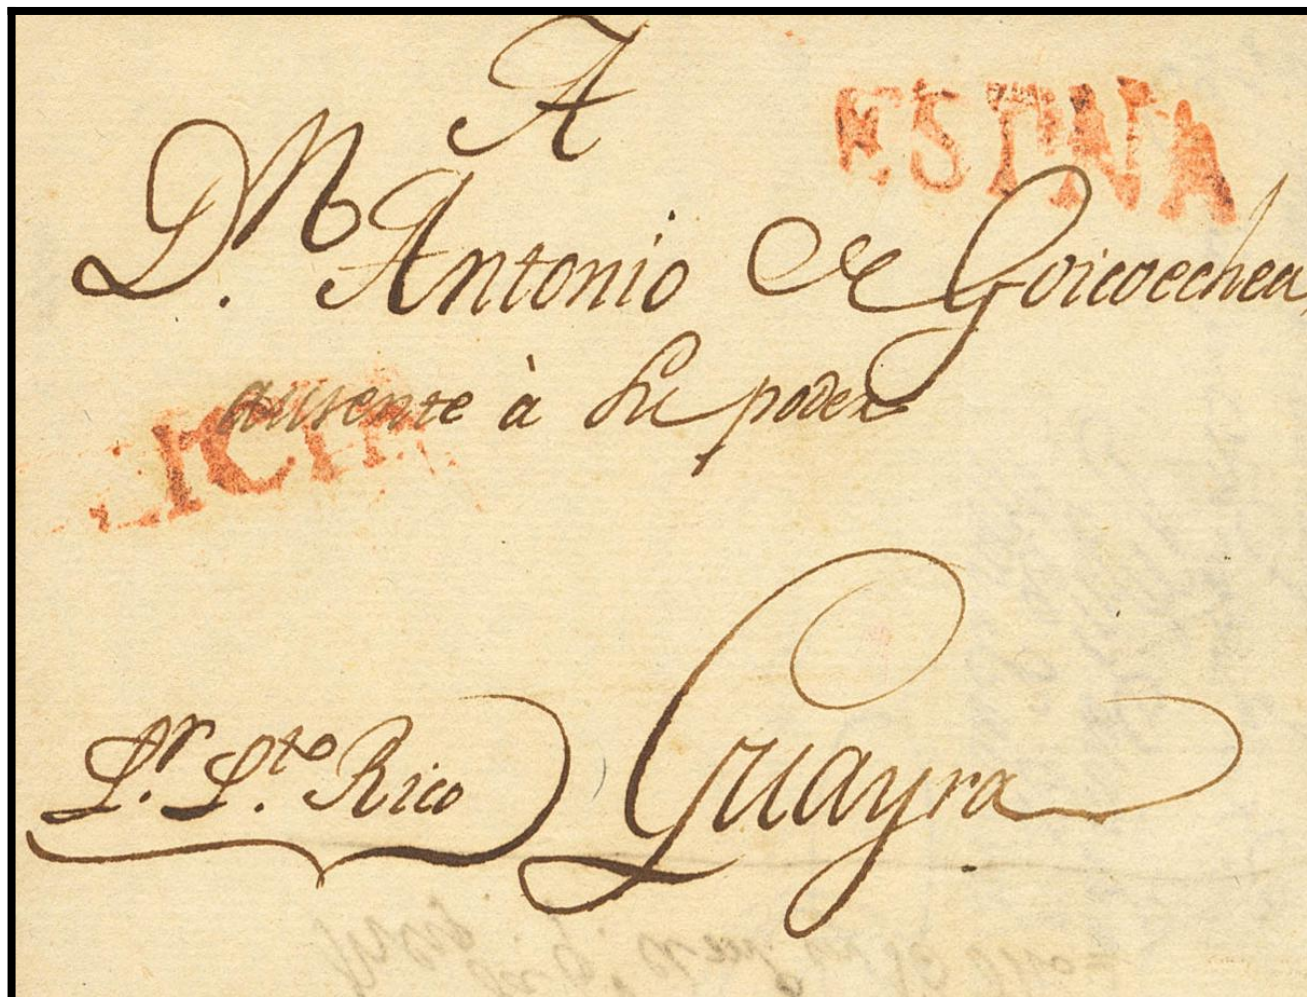 A
ESPNA
Dn. Antonio de Goicoechea,
ausente à Su poder
Pr. Pto. Rico Guayra